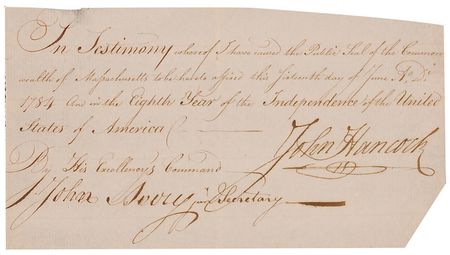 In Testimony whereof I have caused the Public Seal of the Common
wealth of Massachusetts to be hereto affixed this fifteenth day of June A. D.
1784 And in the Eighth Year of the Independence of the United
States of America
John Hancock
By His Excellency's Command
John Avery junr Secretary